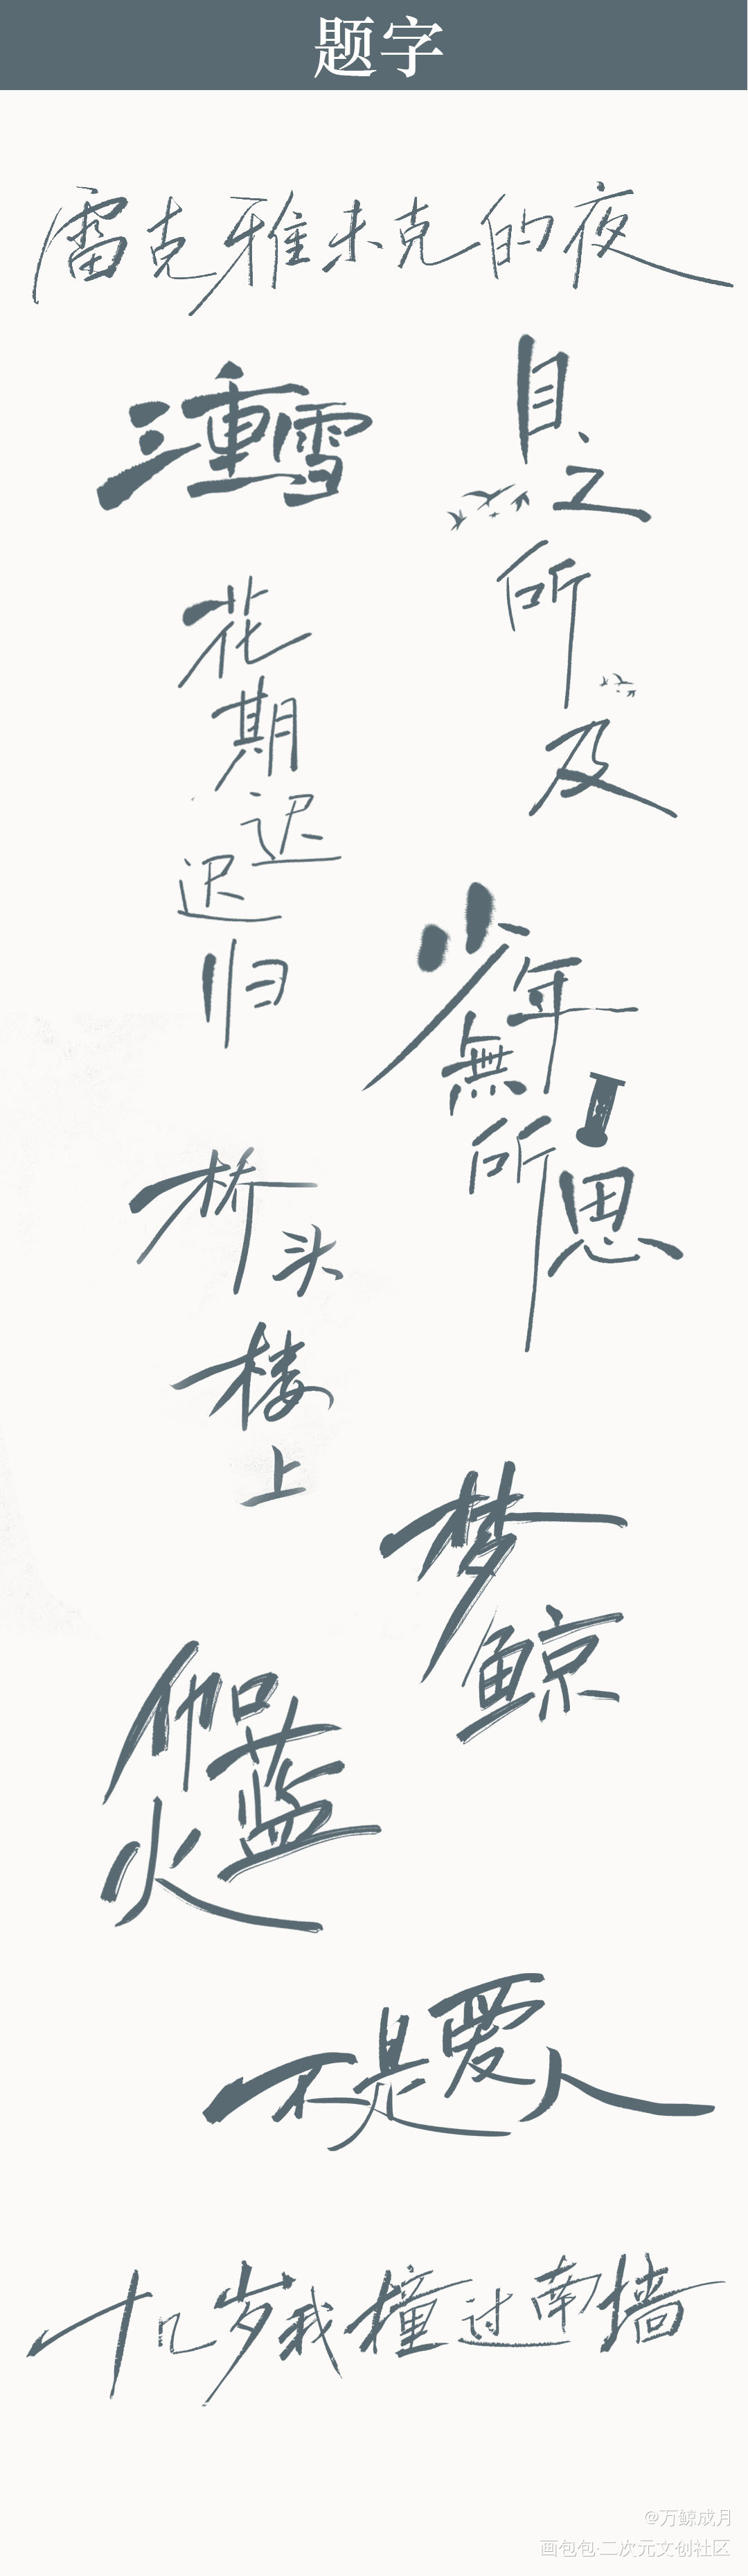 题字
雷克雅未克的夜
三重雪
目之所及
花期迟迟归
少年無所思
桥头楼上
梦鲸
伽蓝火
不是爱人
十几岁我撞过南墙
@万鲸成月
画包包·二次元文创社区